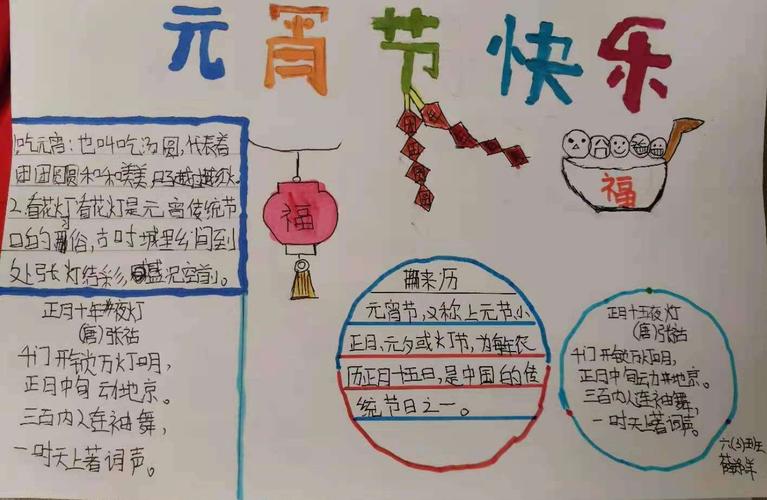 元宵节快乐
吃元宵：也叫吃汤圆，代表着
团团圆圆和和美美，日子越过越红火
2.看花灯看花灯是元宵传统节
日的习俗，古时城里乡间到
处张灯结彩，盛况空前。
正月十五夜灯
(唐)张祜
千门开锁万灯明，
正月中旬动地京。
三百内人连袖舞，
一时天上著词声。
福
福
来历
元宵节，又称上元节、小
正月、元夕或灯节，为每年农
历正月十五日，是中国的传
统节日之一。
正月十五夜灯
(唐)张祜
千门开锁万灯明，
正月中旬动地京。
三百内人连袖舞，
一时天上著词声。
六(3)班